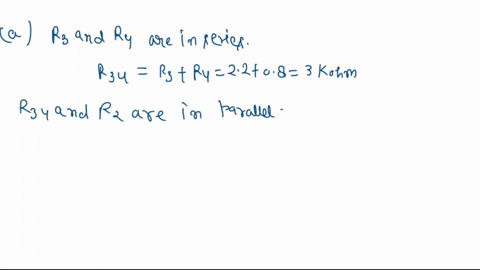 (a) R3 and R4 are in series.
R34 = R3 + R4 = 2.2+0.8 = 3 Kohm
R34 and R2 are in parallel.